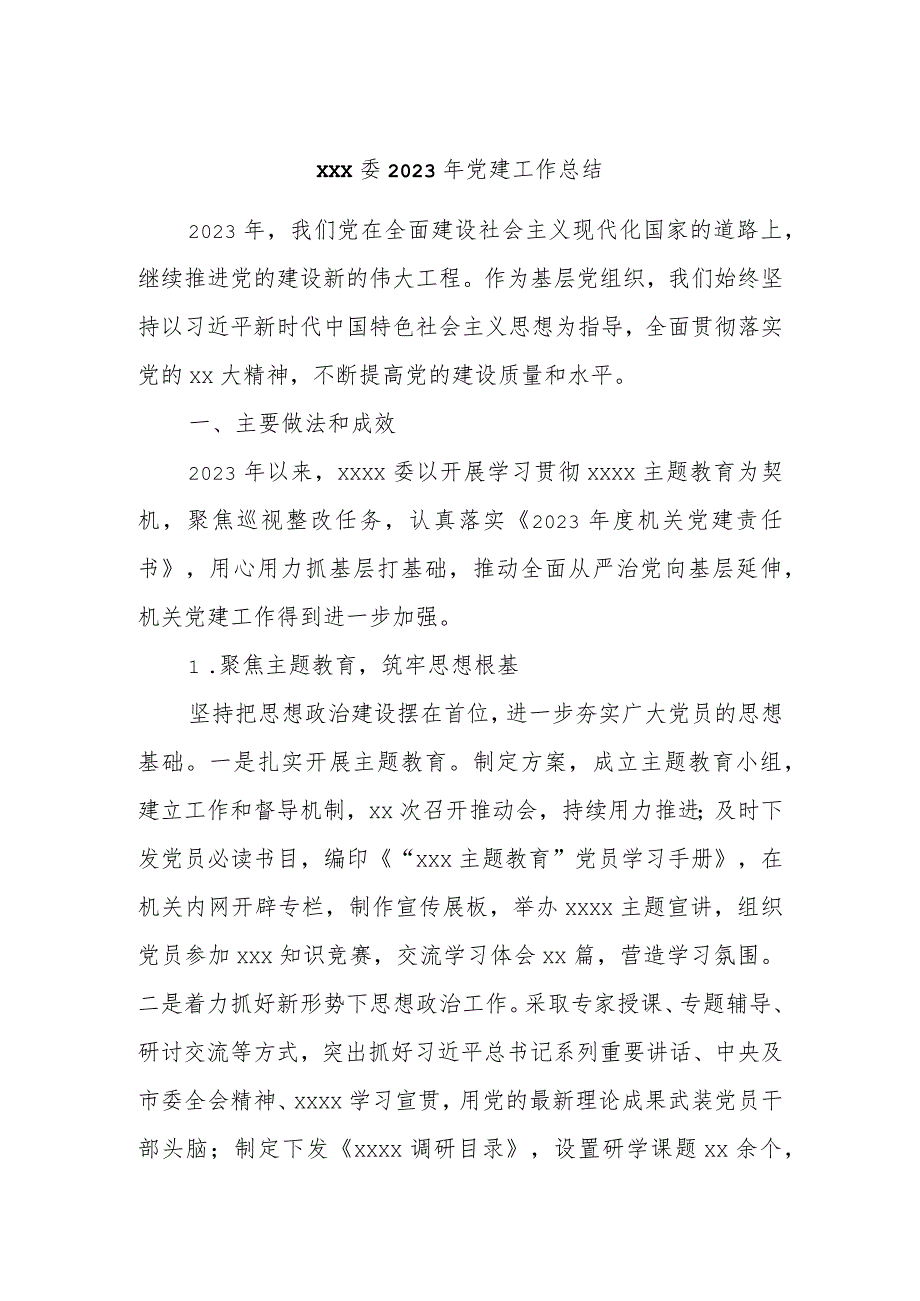 xxx 委 2023 年党建工作总结
2023 年，我们党在全面建设社会主义现代化国家的道路上，
继续推进党的建设新的伟大工程。作为基层党组织，我们始终坚
持以习近平新时代中国特色社会主义思想为指导，全面贯彻落实
党的 xx 大精神，不断提高党的建设质量和水平。
一、主要做法和成效
2023 年以来，xxxx 委以开展学习贯彻 xxxx 主题教育为契
机，聚焦巡视整改任务，认真落实《2023 年度机关党建责任
书》，用心用力抓基层打基础，推动全面从严治党向基层延伸，
机关党建工作得到进一步加强。
1 .聚焦主题教育，筑牢思想根基
坚持把思想政治建设摆在首位，进一步夯实广大党员的思想
基础。一是扎实开展主题教育。制定方案，成立主题教育小组，
建立工作和督导机制，xx 次召开推动会，持续用力推进；及时下
发党员必读书目，编印《“xxx 主题教育”党员学习手册》，在
机关内网开辟专栏，制作宣传展板，举办 xxxx 主题宣讲，组织
党员参加 xxx 知识竞赛，交流学习体会 xx 篇，营造学习氛围。
二是着力抓好新形势下思想政治工作。采取专家授课、专题辅导、
研讨交流等方式，突出抓好习近平总书记系列重要讲话、中央及
市委全会精神、xxxx 学习宣贯，用党的最新理论成果武装党员干
部头脑；制定下发《xxxx 调研目录》，设置研学课题 xx 余个，